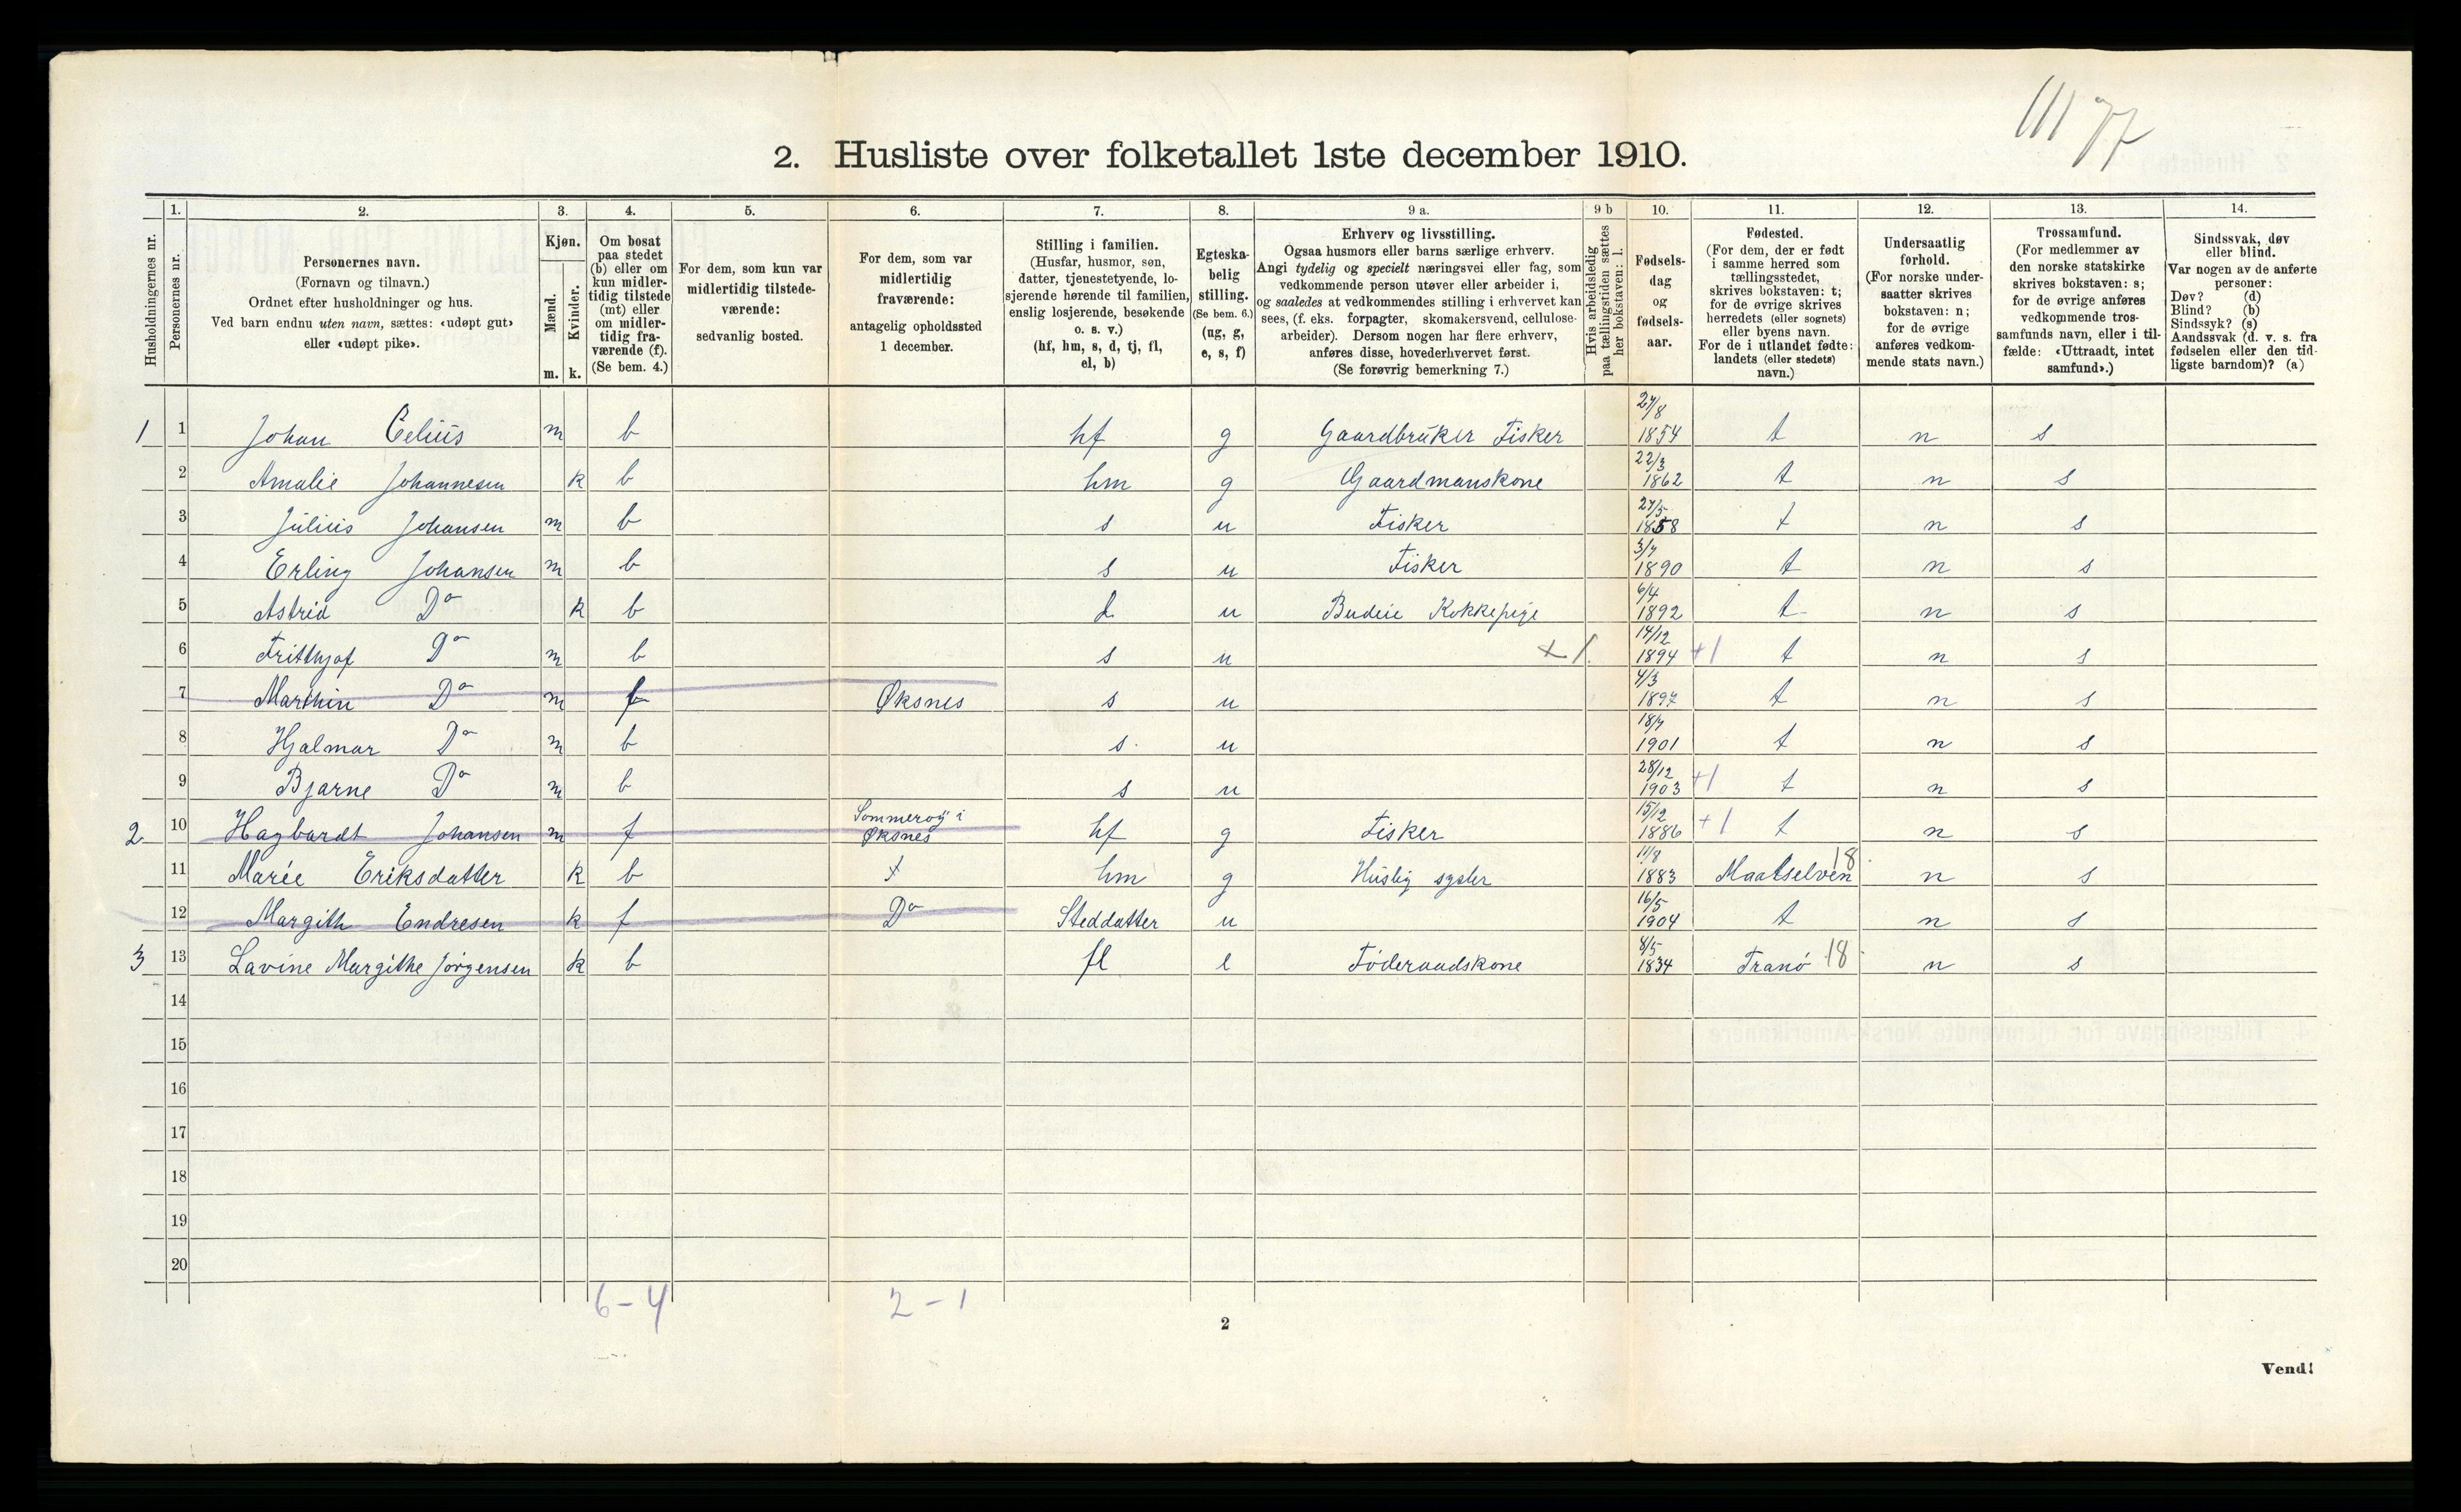 111 77
2. Husliste over folketallet 1ste december 1910.
Husholdningernes nr.
1.
Personernes nr.
2.
Personernes navn.
(Fornavn og tilnavn.)
Ordnet efter husholdninger og hus.
Ved barn endnu uten navn, sættes: «udøpt gut»
eller «udøpt pike».
3.
Kjøn.
Mænd.
Kvinder.
m. k.
4.
Om bosat
paa stedet
(b) eller om
kun midler-
tidig tilstede
(mt) eller
om midler-
tidig fra-
værende (f).
(Se bem. 4.)
5.
For dem, som kun var
midlertidig tilstede-
værende:
sedvanlig bosted.
6.
For dem, som var
midlertidig
fraværende:
antagelig opholdssted
1 december.
7.
Stilling i familien.
(Husfar, husmor, søn,
datter, tjenestetyende, lo-
sjerende hørende til familien,
enslig losjerende, besøkende
o. s. v.)
(hf, hm, s, d, tj, fl,
el, b)
8.
Egteska-
belig
stilling.
(Se bem. 6.)
(ug, g,
e, s, f)
9 a.
Erhverv og livsstilling.
Ogsaa husmors eller barns særlige erhverv.
Angi tydelig og specielt næringsvei eller fag, som
vedkommende person utøver eller arbeider i,
og saaledes at vedkommendes stilling i erhvervet kan
sees, (f. eks. forpagter, skomakersvend, cellulose-
arbeider). Dersom nogen har flere erhverv,
anføres disse, hovederhvervet først.
(Se forøvrig bemerkning 7.)
9 b
Hvis arbeidsledig
paa tællingstiden sættes
her bokstaven: l.
10.
Fødsels-
dag
og
fødsels-
aar.
11.
Fødested.
(For dem, der er født
i samme herred som
tællingsstedet,
skrives bokstaven: t;
for de øvrige skrives
herredets (eller sognets)
eller byens navn.
For de i utlandet fødte:
landets (eller stedets)
navn.)
12.
Undersaatlig
forhold.
(For norske under-
saatter skrives
bokstaven: n;
for de øvrige
anføres vedkom-
mende stats navn.)
13.
Trossamfund.
(For medlemmer av
den norske statskirke
skrives bokstaven: s;
for de øvrige anføres
vedkommende tros-
samfunds navn, eller i til-
fælde: «Uttraadt, intet
samfund».)
14.
Sindssvak, døv
eller blind.
Var nogen av de anførte
personer:
Døv? (d)
Blind? (b)
Sindssyk? (s)
Aandssvak (d. v. s. fra
fødselen eller den tid-
ligste barndom)? (a)
1 1 Johan Celius m b hf g Gaardbruker Fisker 27/8 1854 t n s
2 Amalie Johannesen k b hm g Gaardmanskone 22/3 1862 t n s
3 Julius Johansen m b s u Fisker 27/5 1858 t n s
4 Erling Johansen m b s u Fisker 3/7 1890 t n s
5 Astrid Do k b d u Budeie Kokkepige 6/4 1892 t n s
6 Frithjof Do m b s u +1. 14/12 1894 +1 t n s
7 Marthin Do m f Øksnes s u 4/3 1897 t n s
8 Hjalmar Do m b s u 18/7 1901 t n s
9 Bjarne Do m b s u 28/12 1903 +1 t n s
2 10 Hagbardt Johansen m f Sommerøy i Øksnes hf g Fisker 15/12 1886 +1 t n s
11 Marie Eriksdatter k b + hm g Huslig sysler 11/8 1883 Maalselven 18 n s
12 Margith Endresen k f Do Steddatter u 16/5 1904 t n s
3 13 Lavine Margithe Jörgensen k b fl e Föderaadskone 8/5 1834 Tranö 18 n s
14
15
16
17
18
19
20
6-4 2-1
2
Vend!